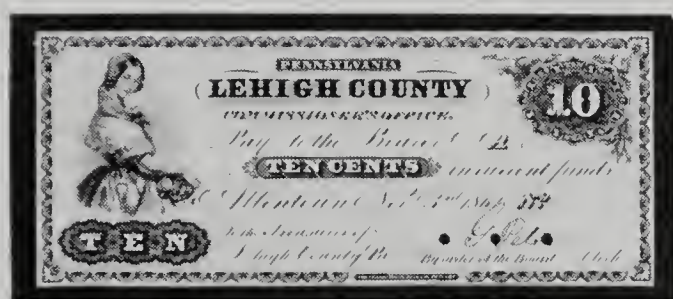 PENNSYLVANIA
LEHIGH COUNTY
COMMISSIONER'S OFFICE.
10
Pay to the Bearer
TEN CENTS
in current funds
Allentown
TEN
To the Treasurer of
Lehigh County Pa
By order of the Board Clerk